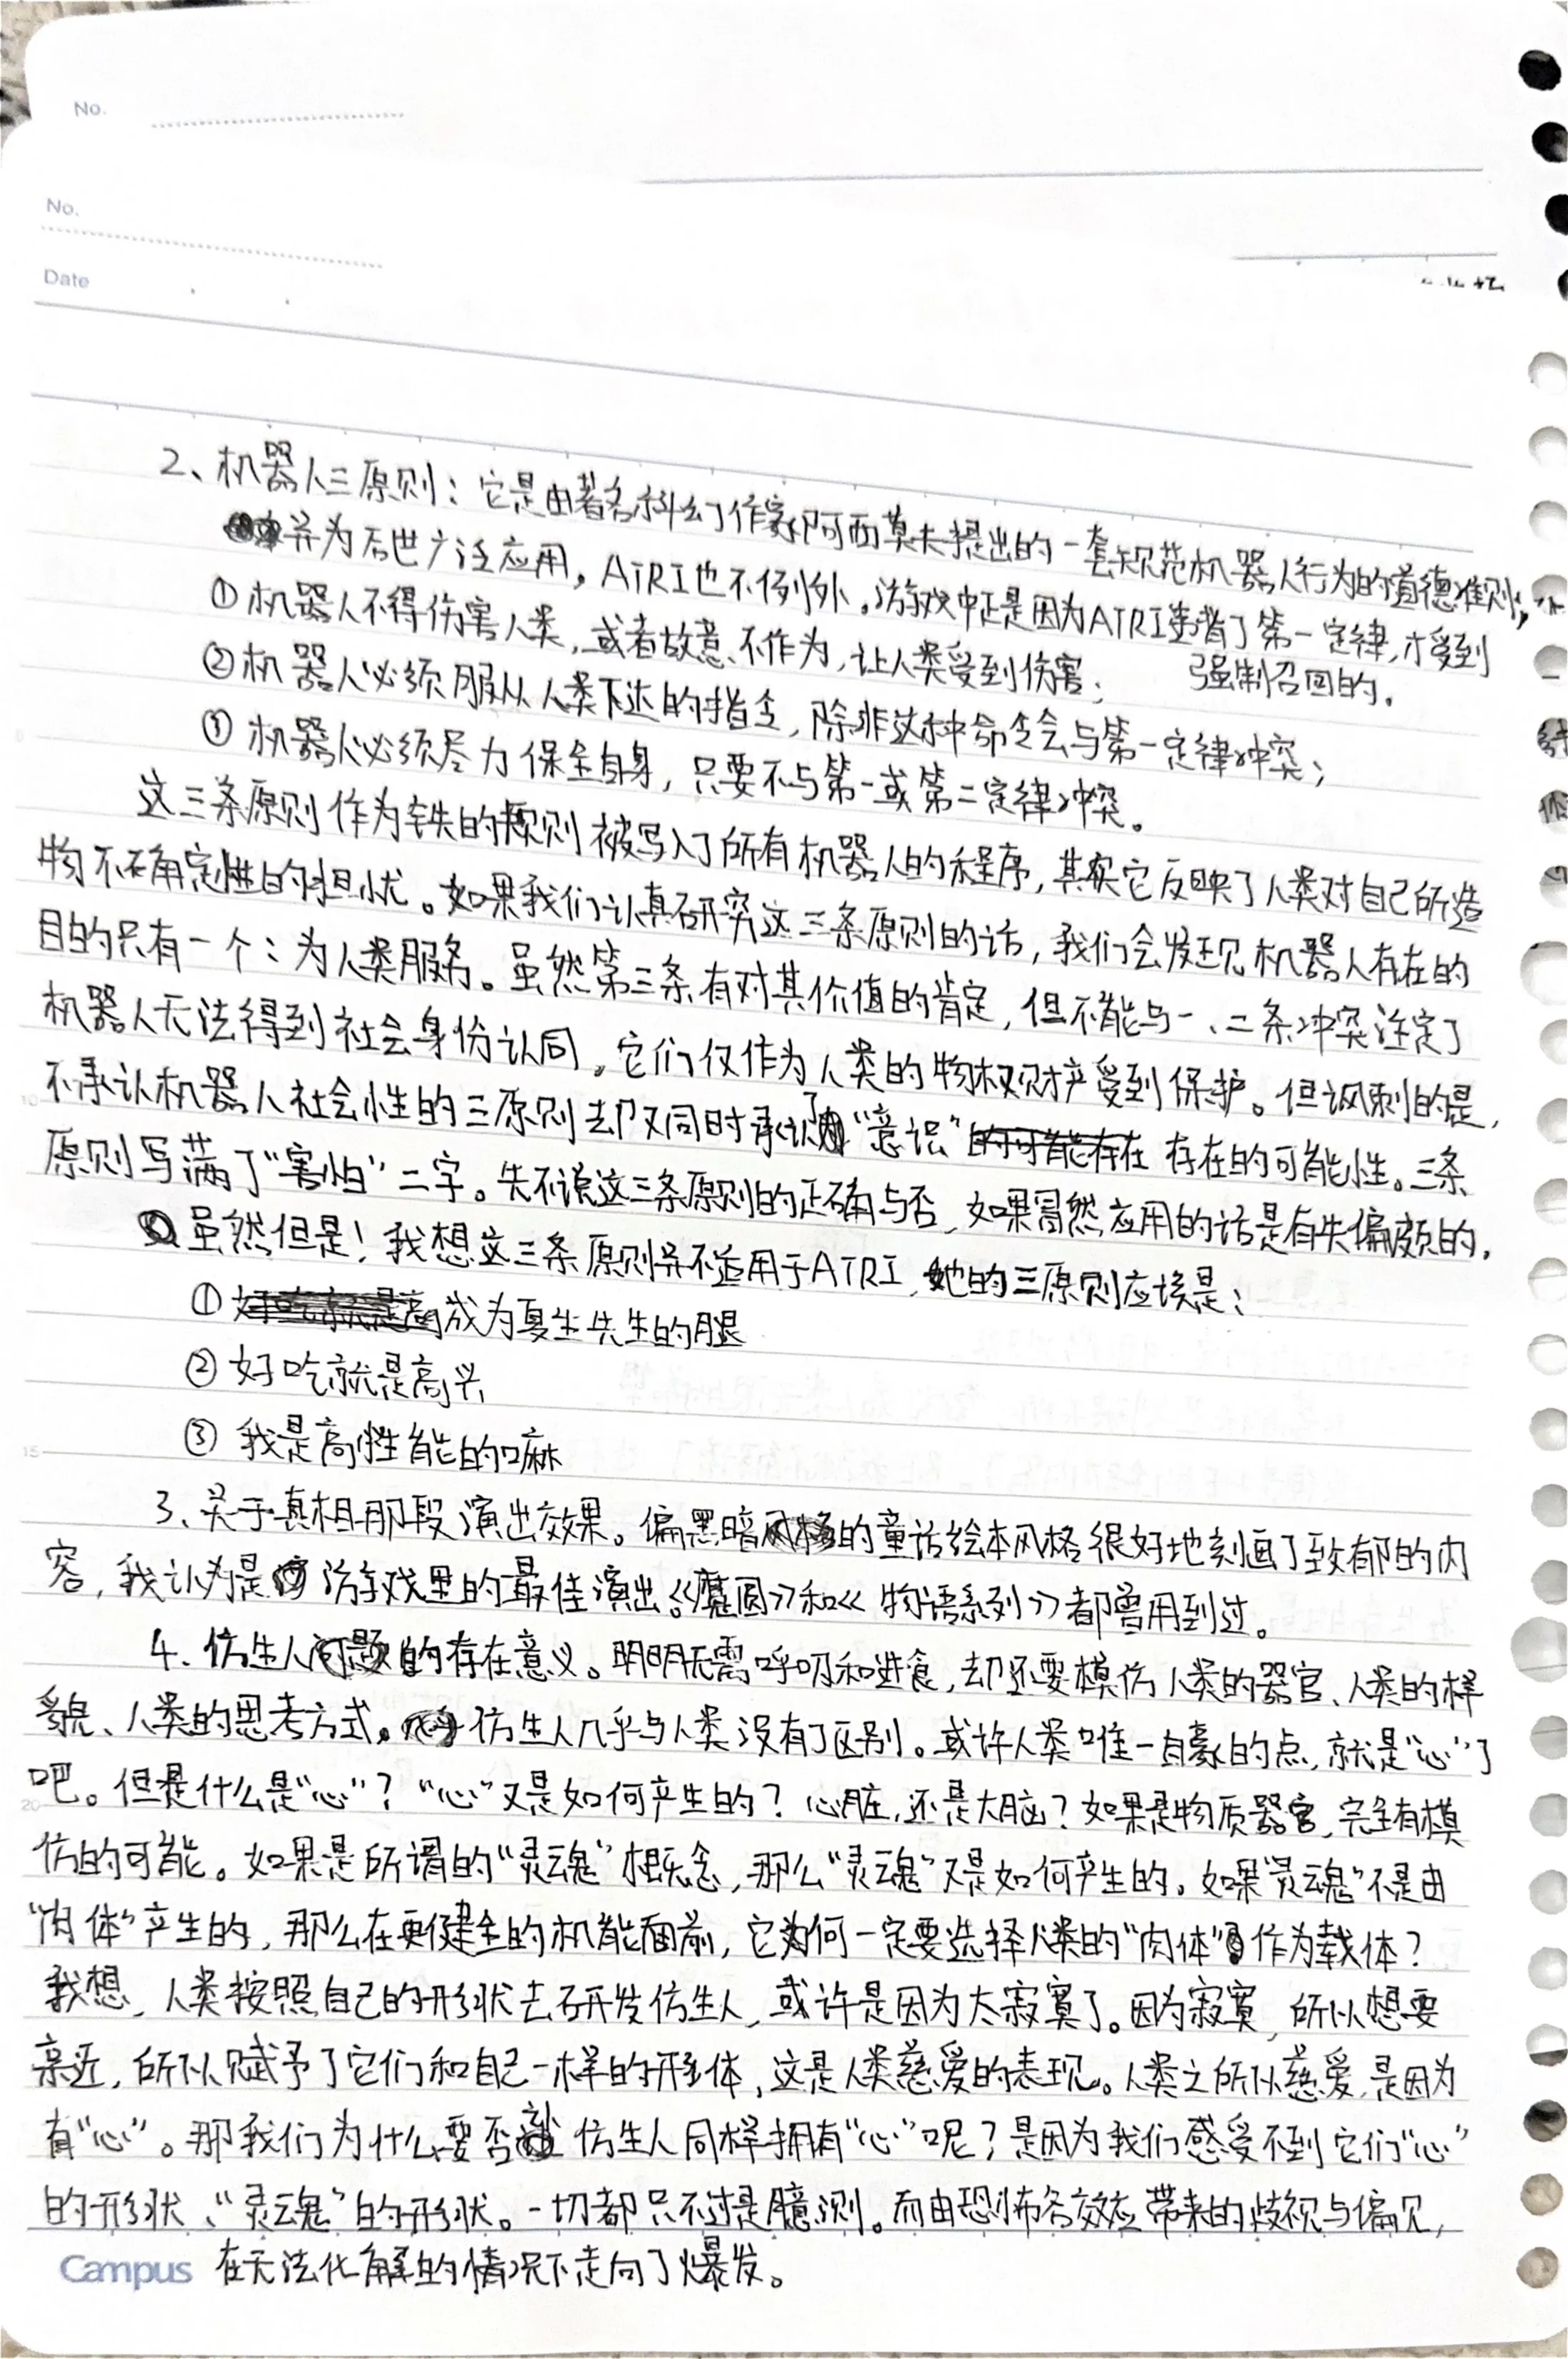 No.
No.
Date
2、机器人三原则：它是由著名科幻作家阿西莫夫提出的一套规范机器人行为的道德准则，
并为后世广泛应用，ATRI也不例外。游戏中正是因为ATRI违背了第一定律，才受到
强制召回的。
①机器人不得伤害人类，或者故意不作为，让人类受到伤害；
②机器人必须服从人类下达的指令，除非这种命令会与第一定律冲突；
③机器人必须尽力保全自身，只要不与第一或第二定律冲突。
这三条原则作为铁的原则被写入了所有机器人的程序，其实它反映了人类对自己所造
物不确定性的担忧。如果我们认真研究这三条原则的话，我们会发现机器人存在的
目的只有一个：为人类服务。虽然第三条有对其价值的肯定，但不能与一、二条冲突注定了
机器人无法得到社会身份认同，它们仅作为人类的物权财产受到保护。但讽刺的是，
不承认机器人社会性的三原则去却又同时承认了“意识”存在的可能性。三条
原则写满了“害怕”二字。先不说这三条原则的正确与否，如果冒然应用的话是有失偏颇的。
虽然但是！我想这三条原则并不适用于ATRI，她的三原则应该是：
①成为夏生先生的腿
②好吃就是高兴
③我是高性能的嘛
3、关于真相那段演出效果。偏黑暗的童话绘本风格很好地刻画了致郁的内
容，我认为是游戏里的最佳演出。《魔圆》和《物语系列》都曾用到过。
4、仿生人的存在意义。明明无需呼吸和进食，却还要模仿人类的器官、人类的样
貌、人类的思考方式。仿生人几乎与人类没有了区别。或许人类唯一自豪的点，就是“心”了
吧。但是什么是“心”？“心”又是如何产生的？心脏，还是大脑？如果是物质器官，完全有模
仿的可能。如果是所谓的“灵魂”概念，那么“灵魂”又是如何产生的。如果“灵魂”不是由
“肉体”产生的，那么在更健全的机能面前，它为何一定要选择人类的“肉体”作为载体？
我想，人类按照自己的形状去研发仿生人，或许是因为太寂寞了。因为寂寞，所以想要
亲近，所以赋予了它们和自己一样的形体，这是人类慈爱的表现。人类之所以慈爱，是因为
有“心”。那我们为什么要否认仿生人同样拥有“心”呢？是因为我们感受不到它们“心”
的形状、“灵魂”的形状。一切都只不过是臆测。而由恐怖谷效应带来的歧视与偏见，
在无法化解的情况下走向了爆发。
Campus